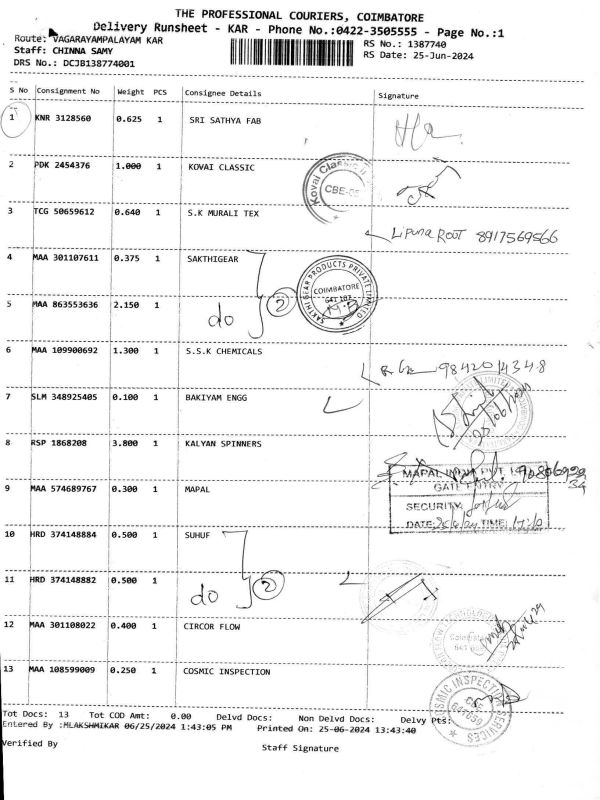 THE PROFESSIONAL COURIERS, COIMBATORE
Delivery Runsheet - KAR - Phone No.:0422-3505555 - Page No.:1
Route: VAGARAYAMPALAYAM KAR
RS No.: 1387740
Staff: CHINNA SAMY
RS Date: 25-Jun-2024
DRS No.: DCJB138774001
S No Consignment No Weight PCS Consignee Details Signature
1 KNR 3128560 0.625 1 SRI SATHYA FAB
2 PDK 2454376 1.000 1 KOVAI CLASSIC
Kovai Classic CBE-05
3 TCG 50659612 0.640 1 S.K MURALI TEX
Lipuna ROOT 8917569566
4 MAA 301107611 0.375 1 SAKTHIGEAR
SAKTHI GEAR PRODUCTS PRIVATE LIMITED
COIMBATORE
641 107
2
5 MAA 863553636 2.150 1 do
6 MAA 109900692 1.300 1 S.S.K CHEMICALS
9842014348
7 SLM 348925405 0.100 1 BAKIYAM ENGG
8 RSP 1868208 3.800 1 KALYAN SPINNERS
MAPAL INDIA PVT
GATE ENTRY
SECURITY
DATE: TIME:
9 MAA 574689767 0.300 1 MAPAL
10 HRD 374148884 0.500 1 SUHUF
2
11 HRD 374148882 0.500 1 do
12 MAA 301108022 0.400 1 CIRCOR FLOW
Coimbatore
13 MAA 108599009 0.250 1 COSMIC INSPECTION
COSMIC INSPECTION SERVICES
CBE
Tot Docs: 13 Tot COD Amt: 0.00 Delvd Docs: Non Delvd Docs: Delvy Pts:
Entered By :MLAKSHMIKAR 06/25/2024 1:43:05 PM Printed On: 25-06-2024 13:43:40
Verified By
Staff Signature